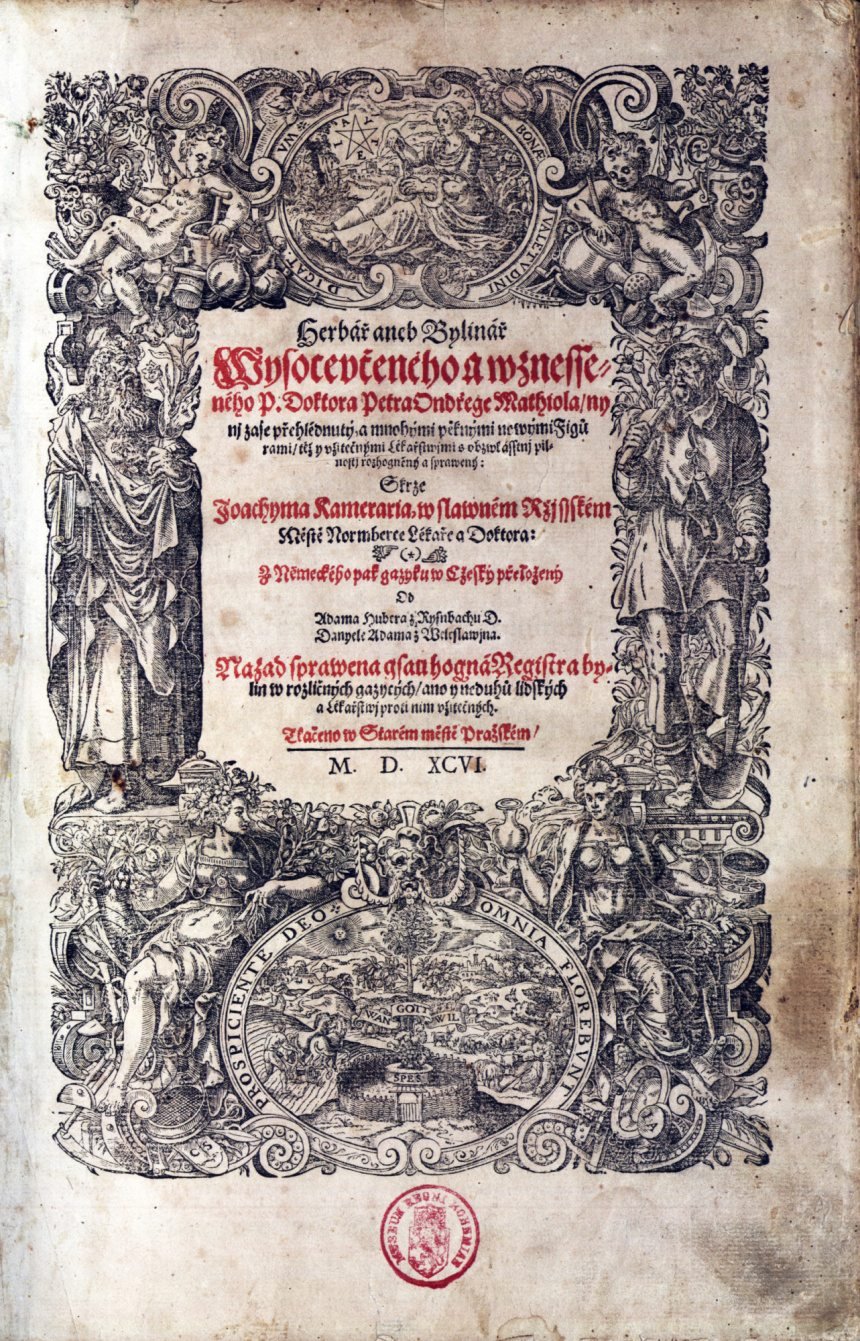 BONÆ VALETVDINI DICATVM
Herbář aneb Bylinář
Wysocevčeného a wznesse-
ného P. Doktora Petra Ondřege Mathiola/ ny
nj zase přehlédnutý, a mnohými pěknými nowými Figů
rami/ též y vžitečnými Lékařstwjmi s obzwlásstnj pil-
nostj rozhogněný a sprawený:
Skrze
Joachyma Kameraria, w slawném Ržjsském
Městě Normberce Lékaře a Doktora:
(*)
Z Německého pak gazyku w Cžeský přeložený
Od
Adama Hubera z Rysnbachu D.
Danyele Adama z Weleslawjna.
Nazad sprawena gsau hogná Registra by-
lin w rozličných gazycých/ ano y neduhů lidských
a Lékařstwj proti nim vžitečných.
Tlačeno w Starém městě Pražském/
M. D. XCVI.
PROSPICIENTE DEO OMNIA FLOREBVNT
WAN GOTT WIL
SPES
MUSEUM REGNI BOHEMIAE